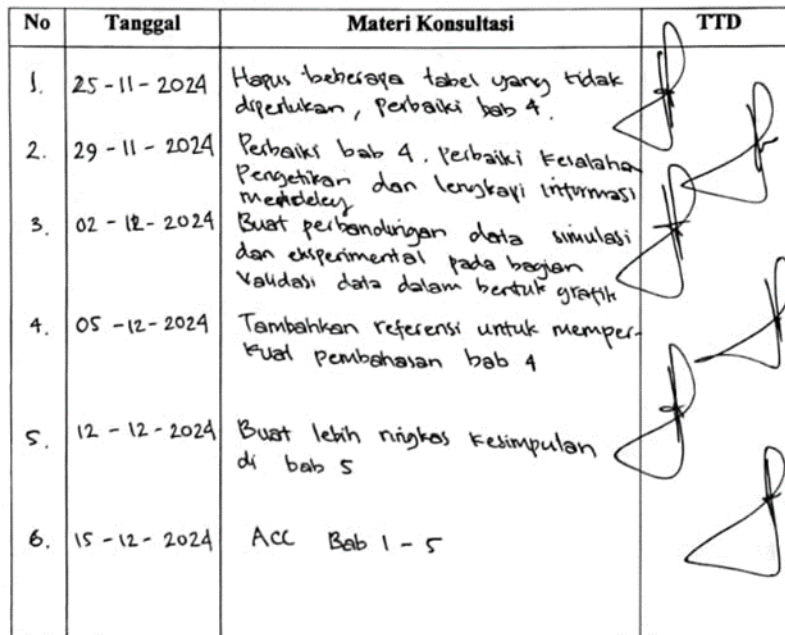 No Tanggal Materi Konsultasi TTD
1. 25-11-2024 Hapus beberapa tabel yang tidak
diperlukan, Perbaiki bab 4.
2. 29-11-2024 Perbaiki bab 4. Perbaiki Kesalahan
Pengetikan dan lengkapi informasi
mendeley
3. 02-12-2024 Buat perbandingan data simulasi
dan eksperimental pada bagian
Validasi data dalam bentuk grafik
4. 05-12-2024 Tambahkan referensi untuk memper-
kuat pembahasan bab 4
5. 12-12-2024 Buat lebih ringkas kesimpulan
di bab 5
6. 15-12-2024 ACC Bab 1-5